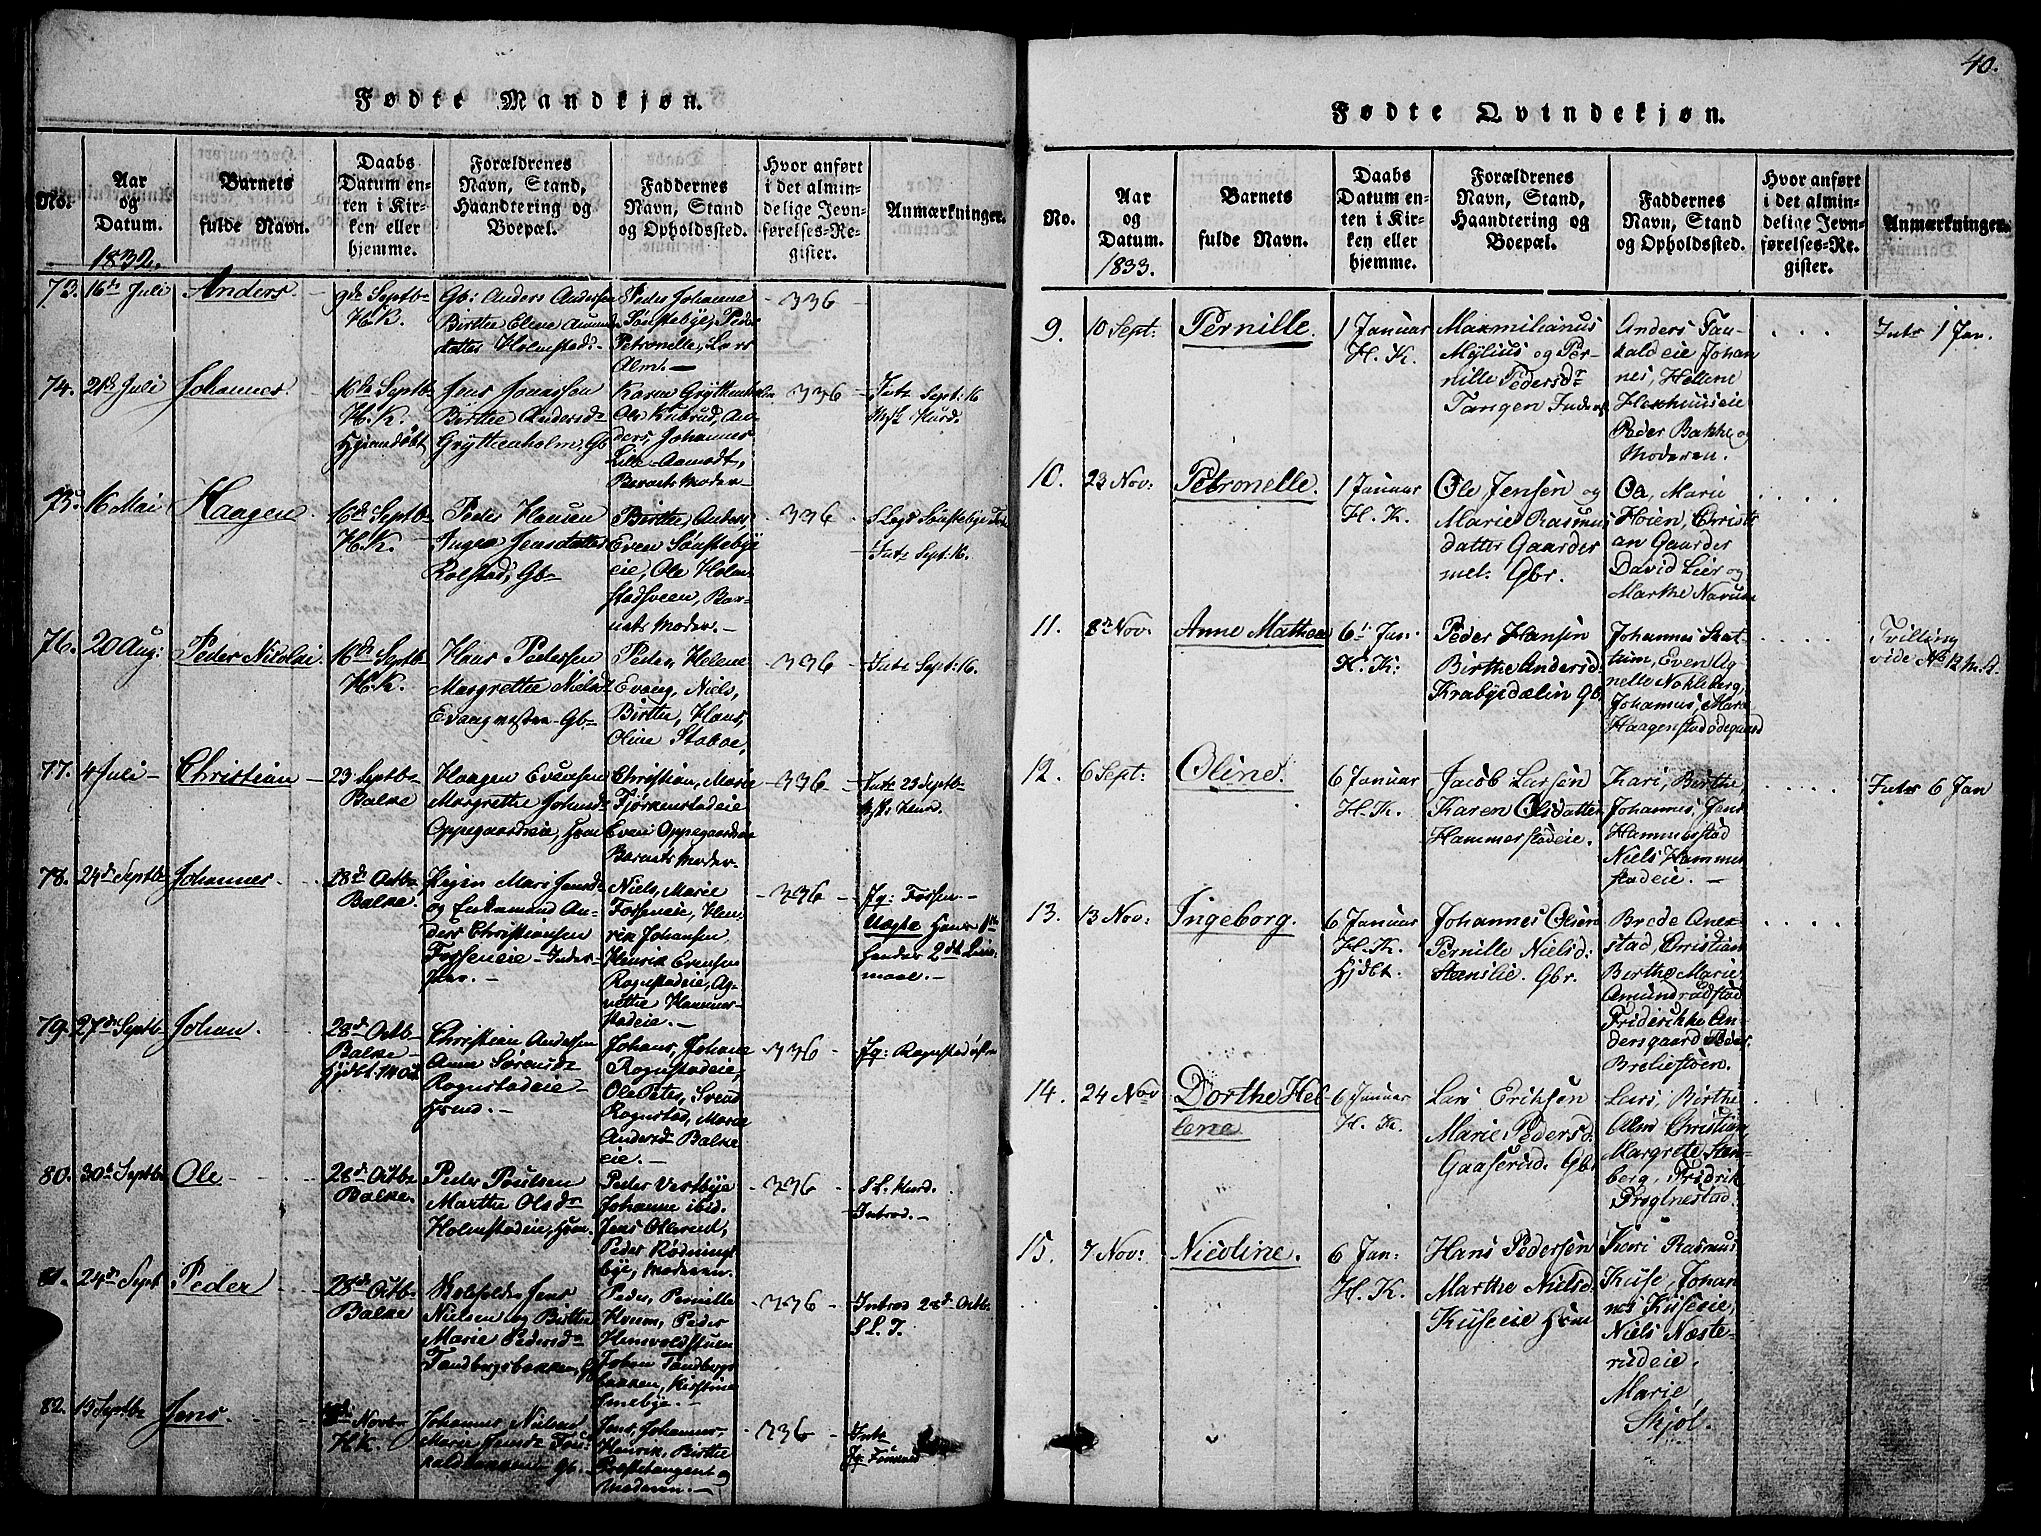 Fødte Mandkjøn.
No.
Aar
og
Datum.
1832.
Barnets
fulde Navn.
Daabs
Datum en-
ten i Kir-
ken eller
hjemme.
Forældrenes
Navn, Stand,
Haandtering og
Boepæl.
Faddernes
Navn, Stand
og Opholdssted.
Hvor anført
i det almin-
delige Jevn-
førelses-Re-
gister.
Anmærkninger.
73. 16de Juli
Anders.
9de Septb
H.K.
Gb: Anders Andersen
Birthe Elene Amund
datter Holmstad
Peder Johanna
Sønstebye, Peder
Petronelle, Lars
Alm.
336
74. 21de Juli
Johannes.
16de Septb
H.K.
Hjemdøbt
Jens Jonassen
Birthe Andersd
Gryttenholm, Gb
Karen Gryttenholm
Ole Kubrud, An-
ders, Johannes
Lille-Aamodt,
Barnets Moder
336
Intr Sept: 16
75. 16 Mai
Haagen
16de Septb
H.K.
Peder Hansen
Inger Jensdatter
Rolstad, Gb
Birthe, Anders
Even Sønstebye
eie, Ole Holm
stadsveen, Bar-
nets Moder.
336
Intr Sept: 16.
76. 20 Aug:
Peder Nicolai.
16de Septb
H.K.
Hans Pedersen
Margrethe Nielsd
Evang vestre Gb
Peder, Helene
Evang, Niels,
Birthe, Hans,
Oline Staboe,
336
Intr Sept: 16.
77. 4 Juli
Christian
23 Septb
Balke
Haagen Evensen
Margrethe Johansd
Oppegaardseie, Huusm
Christian, Marie
Fjørkenstadeie
Even Oppegaardseie
Barnets Moder.
336
Intr 23 Septb
78. 24de Septb
Johannes
28de Octb
Balke.
Pigen Mari Jensd
og Enkemand An-
ders Christiansen
Fosseneie Inder-
ster.
Niels, Marie
Fosseneie, Hen-
rik Johansen,
Henrik Evensen
Rognstadeie, Ag-
nethe Hammer-
stadeie.
336
Jg: Fossen
Uægte Hans 1ste
hendes 2det Leier-
maal.
79. 27de Septb
Johan.
28de Octb
Balke
Hjdbt. 14 Oct
Christian Andersen
Anne Sørensd
Rognstadeie
Huusmd.
Johans, Johane
Rognstadeie,
Ole Peter, Svend
Rognstad, Marie
Andersd Balke
eie.
336
Jg: Rognstad østre
80. 30te Septb
Ole
28de Octb
Balke.
Peder Poulsen
Marthe Olsdr
Holmstadeie, Huusm.
Peder Vestbye
Johanne ibid.
Jens Ollerud,
Peder Rødnings
bye, Moderen.
336
Introd.
81. 24de Sept
Peder
28de Octb
Balke
Jens
Nielsen og Birthe
Marie Pedersd
Tandbergsbakken, Gb
Peder, Pernille
Kvem, Peder
Hemvoldstuen
Johan Tandbergs
bakken, Kirstine
Smebye.
336
Introd 28de Octb
82. 15 Septb
Jens.
Novbr
H.K.
Johannes Nielsen
Marie Jensd
Jens, Johannes
Henrik, Birthe
Præstetangent og
Moderen.
336
Intr
40.
Fødte Qvindekjøn.
No.
Aar
og
Datum.
1833.
Barnets
fulde Navn.
Daabs
Datum en-
ten i Kir-
ken eller
hjemme.
Forældrenes
Navn, Stand,
Haandtering og
Boepæl.
Faddernes
Navn, Stand
og Opholdssted.
Hvor anført
i det almin-
delige Jevn-
førelses-Re-
gister.
Anmærkninger.
9. 10 Sept:
Pernille.
1 Januar
H. K.
Maxmilianus
Mylius og Per-
nille Pedersdr
Tangen Inders
Anders Tan-
kaldeie Johan
nes, Hellene
Hexhuuseie
Peder Bakke og
Moderen.
Intr 1 Jan.
10. 23 Nov:
Petronelle.
1 Januar
H. K.
Ole Jensen og
Marie Rasmus
datter Gaarder
mel. Gbr.
Oa, Marie
Høien, Christi
an Gaarder
David Lier og
Marthe Narum
11. 8de Nov:
Anne Mathea
6te Jan:
H. K.
Peder Hansen
Birthe Andersd
Krabyedalen Gb
Johannes Skat-
tum, Even Ag-
nelle Nøkleberg,
Johannes, Mari
Haagenstadødegaard
Tvilling
vide No 12 M. K.
12. 6 Sept:
Oline.
6 Januar
H. K.
Jacob Larsen
Karen Olsdatter
Hammerstadeie.
Kari, Birthe,
Johannes, Jens
Hammerstad
Niels Hammer
stadeie.
Intr 6 Jan
13. 13 Nov:
Ingeborg.
6 Januar
H. K.
Hjdbt.
Johannes Olsen
Pernille Nielsd:
Stenslie. Gbr.
Brede Anex-
stad, Christian
Birthe Marie
Amundrudstad
Friderikke An-
dersgaard Peder
Breliestøen.
14. 24 Nov
Dorthe Hel-
lene
6 Januar
H. K.
Lars Eriksen
Marie Pedersd.
Gaaserud. Gbr
Lars, Birthe
Alm Christian,
Margrete Sten-
berg, Fridrik
Prøglnestad.
15. 7 Nov:
Nicoline.
6 Jan:
H. K.
Hans Pedersen
Marthe Nielsd
Kiiseeie Huusm
Kari Rasmus
Kiise, Johan
nes Kiiseeie,
Niels Næste-
rudeie.
Marie
Skjøl.